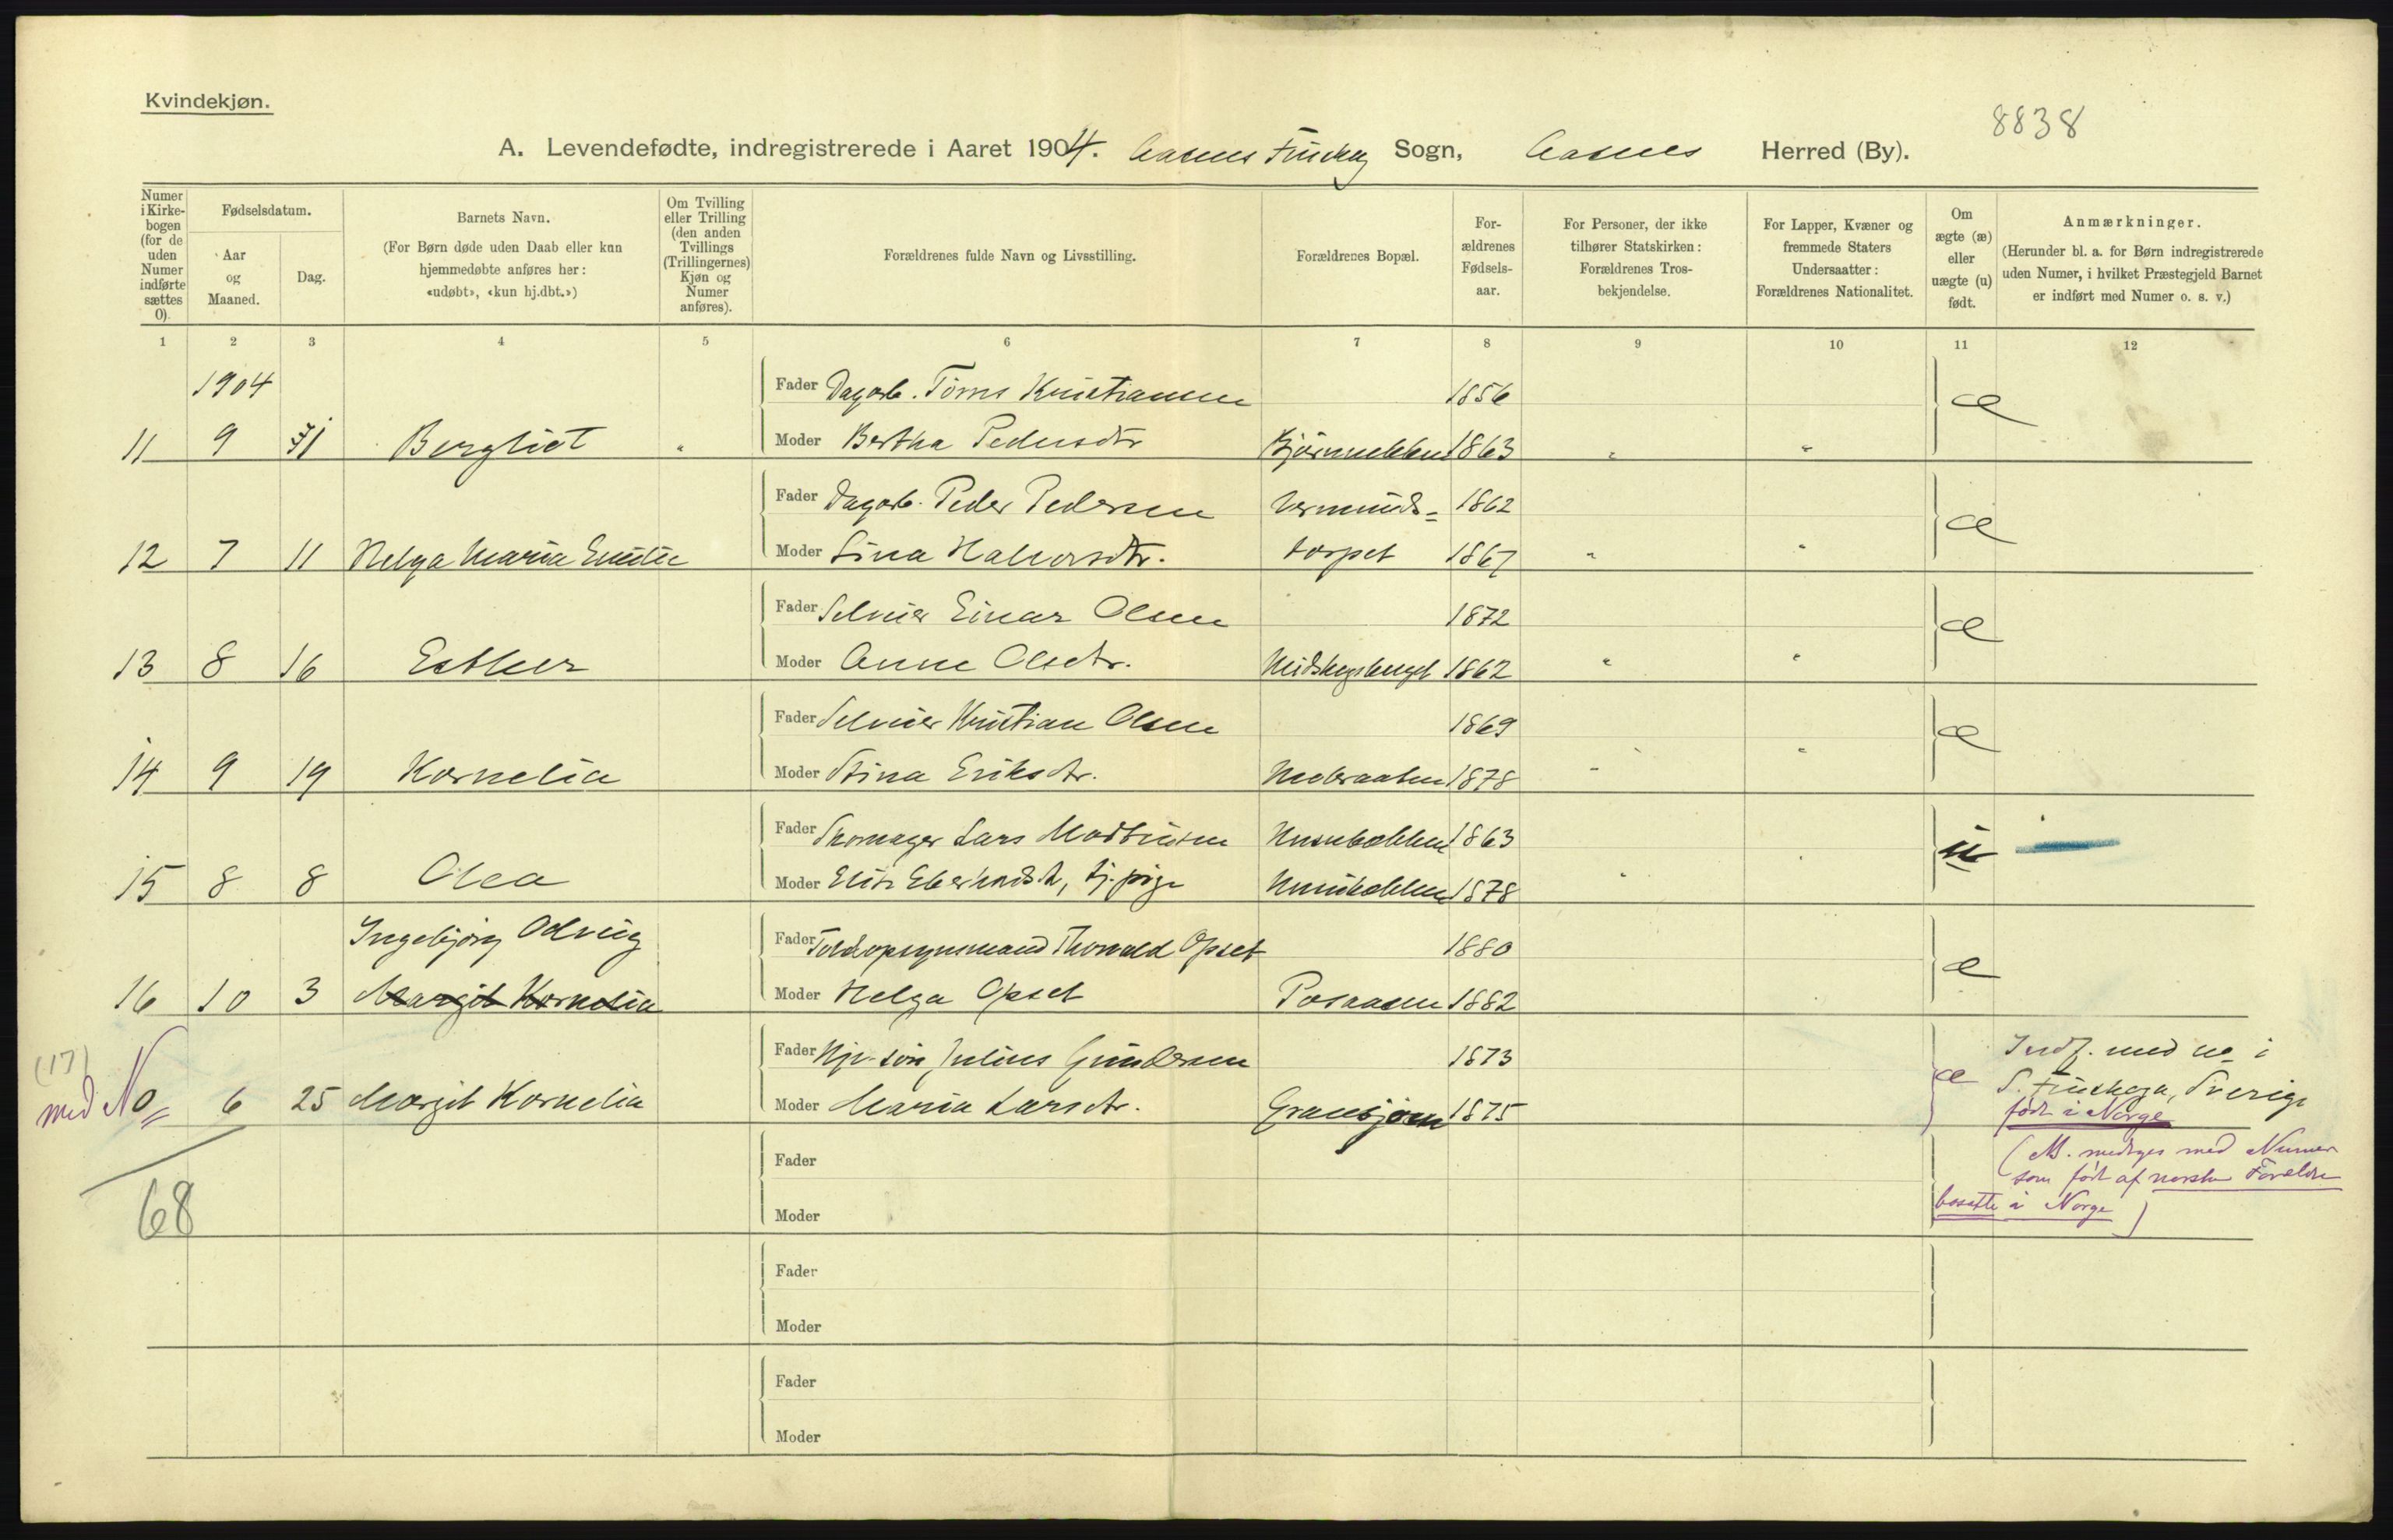 Kvindekjøn.
8838
A. Levendefødte, indregistrerede i Aaret 1904. Aasnes Finskog Sogn, Aasnes Herred (By).
Numer i Kirkebogen (for de uden Numer indførte sættes 0).
Fødselsdatum.
Aar og Maaned.
Dag.
Barnets Navn.
(For Børn døde uden Daab eller kun hjemmedøbte anføres her: «udøbt», «kun hj.dbt.»)
Om Tvilling eller Trilling (den anden Tvillings (Trillingernes) Kjøn og Numer anføres).
Forældrenes fulde Navn og Livsstilling.
Forældrenes Bopæl.
Forældrenes Fødselsaar.
For Personer, der ikke tilhører Statskirken: Forældrenes Trosbekjendelse.
For Lapper, Kvæner og fremmede Staters Undersaatter: Forældrenes Nationalitet.
Om ægte (æ) eller uægte (u) født.
Anmærkninger.
(Herunder bl. a. for Børn indregistrerede uden Numer, i hvilket Præstegjeld Barnet er indført med Numer o. s. v.)
1 2 3 4 5 6 7 8 9 10 11 12
1904 Fader Dagarb. Töms Kristiansen 1856 æ
11 9 Bergliot " Moder Bertha Pedersdtr 1863 " "
Fader Dagarb. Peder Pedersen Vermunds- 1862 æ
12 7 11 Helga Maria Emilie Moder Lina Halvorsdtr. torpet 1867 " "
Fader Selveier Einar Olsen 1872 æ
13 8 16 Esther Moder Anne Olsdtr. 1862 " "
Fader Selveier Kristian Olsen 1869 æ
14 9 19 Kornelia Moder Stina Eriksdtr. 1878 " "
Fader Skomager Lars Mortinsen 1863 u
15 8 8 Olea Moder Elise tj. pige 1878 "
Ingebjörg Odveig Fader Toldopsynsmand Thorvald Opset 1880 æ
16 10 3 Margit Kornelia Moder Helga Opset Posaasen 1882
(17)
Fader Julius Gundersen 1873 æ Indf. med no i
med No 6 25 Margit Kornelia Moder Maria Larsdtr. 1875 S. Finskoga, Sverige
født i Norge
Fader (M. medtages med Numer
som født af norske Forældre
Moder bosatte i Norge)
68
Fader
Moder
Fader
Moder